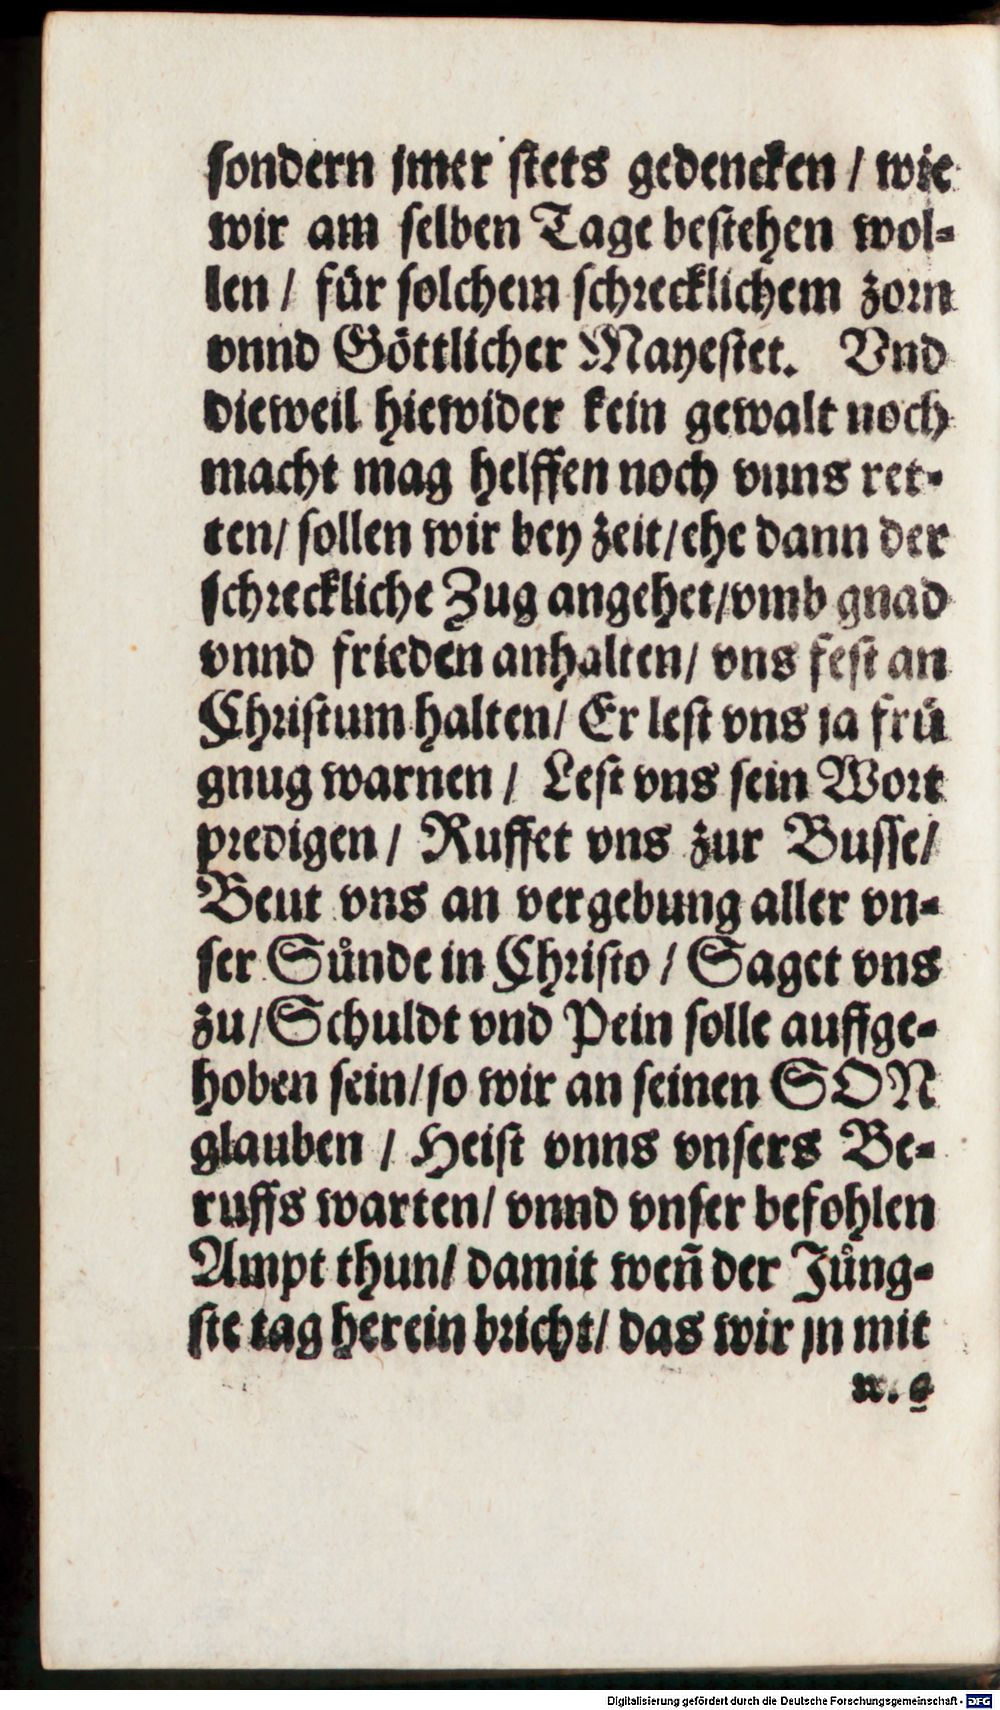 sondern jmer stets gedencken / wie
wir am selben Tage bestehen wol-
len / für solchem schrecklichem zorn
vnnd Göttlicher Mayestet. Vnd
dieweil hiewider kein gewalt noch
macht mag helffen noch vnns ret-
ten / sollen wir bey zeit / ehe dann der
schreckliche Zug angehet / vmb gnad
vnnd frieden anhalten / vns fest an
Christum halten / Er lest vns ja frü
gnug warnen / Lest vns sein Wort
predigen / Ruffet vns zur Busse /
Beut vns an vergebung aller vn-
ser Sünde in Christo / Saget vns
zu / Schuldt vnd Pein solle auffge-
hoben sein / so wir an seinen SON
glauben / Heist vnns vnsers Be-
ruffs warten / vnnd vnser befohlen
Ampt thun / damit weñ der Jüng-
ste tag herein bricht / das wir jn mit
Digitalisierung gefördert durch die Deutsche Forschungsgemeinschaft - DFG